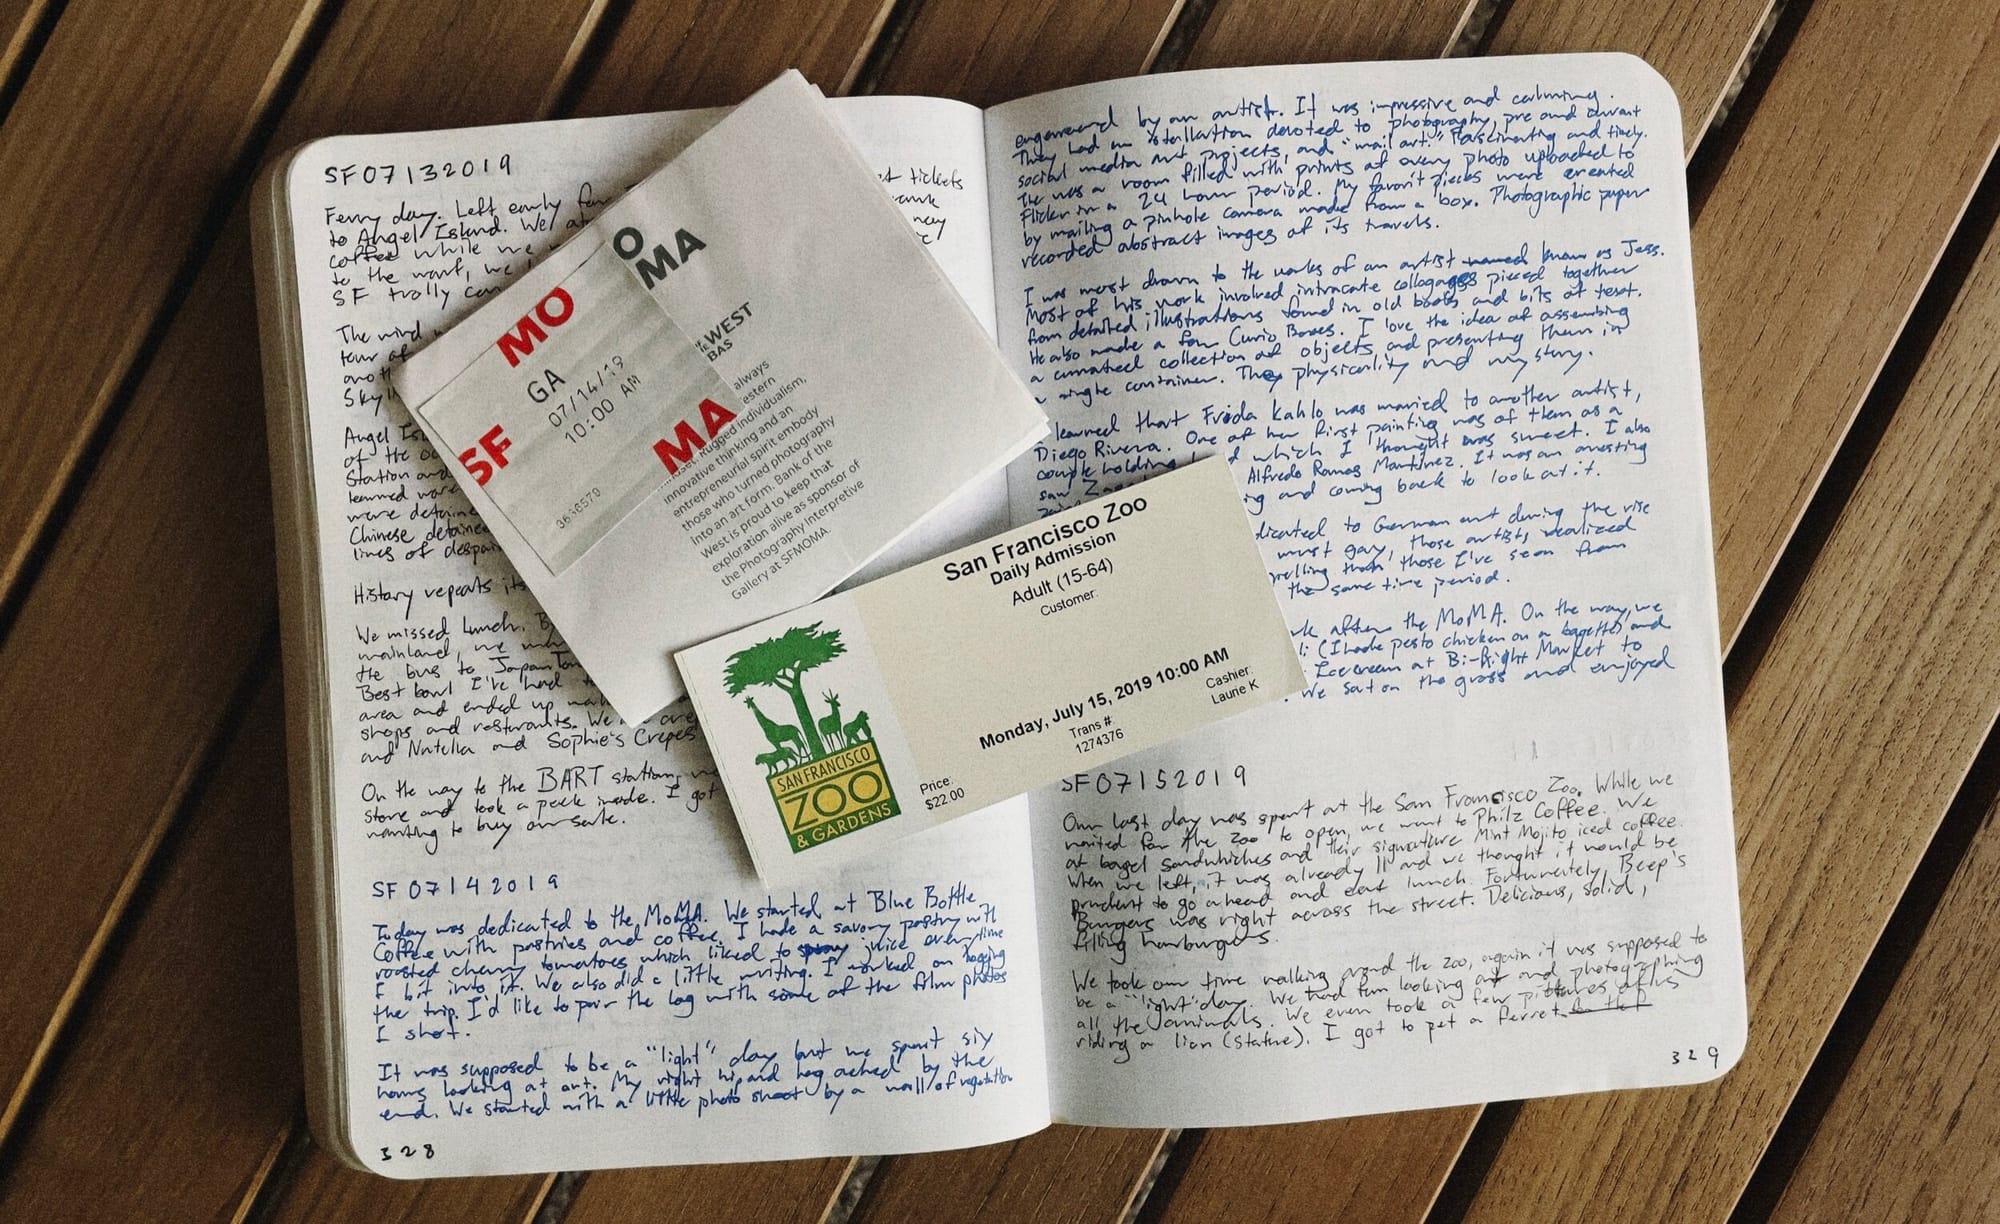 SF07132019
Ferry day. Left early for
to Angel Island. We at
coffee while we
to the warf, we
SF trolly car
t tickets
The wind
tour of
anoth
Skyli
Angel Isl
of the
Station and
learned more
were detaine
Chinese detainee
lines of despair
History repeats its
We missed lunch. B
mainland, we
the bus to JapanTown
Best bowl I've had
area and ended up
shops and restaurants. We
and Nutella and Sophie's Crepes
On the way to the BART station, we
store and took a peek inside. I got
wanting to buy
SF 07142019
Today was dedicated to the MoMA. We started at Blue Bottle
Coffee with pastries and coffee. I hade a savory pastry with
roasted cherry tomatoes which liked to juice everytime
I bit into it. We also did a little writing. I worked on logging
the trip. I'd like to pair the log with some of the film photos
I shot.
It was supposed to be a "light" day but we spent six
hours looking at art. My right hip and leg ached by the
end. We started with a little photo shoot by a wall of vegetation
328
MO
SF
MA
GA
07/14/19
10:00 AM
3686570
O
MA
WEST
BAS
always
estern
set. Rugged individualism,
innovative thinking and an
entrepreneurial spirit embody
those who turned photography
into an art form. Bank of the
West is proud to keep that
exploration alive as sponsor of
the Photography Interpretive
Gallery at SFMOMA.
San Francisco Zoo
Daily Admission
Adult (15-64)
Customer:
Monday, July 15, 2019 10:00 AM
Trans #
1274376
Cashier
Laune K
Price:
$22.00
SAN FRANCISCO
ZOO
& GARDENS
by an artist. It was impressive and calming.
They had an installation devoted to photography, pre and current
social media art projects, and "mail art." Fascinating and timely.
The was a room filled with prints of every photo uploaded to
Flickr in a 24 hour period. My favorit pieces were created
by mailing a pinhole camera made from a box. Photographic paper
recorded abstract images of its travels.
I was most drawn to the works of an artist named known as Jess.
Most of his work involved intracate collogages pieced together
from detailed illustrations found in old books and bits of text.
He also made a few Curio Boxes. I love the idea of assembling
a curated collection of objects and presenting them in
a single container. The physicality and mystery.
I learned that Frida Kahlo was maried to another artist,
Diego Rivera. One of her first painting was of them as a
couple holding which I thought was sweet. I also
saw Alfredo Ramos Martinez. It was an arresting
ng and coming back to look at it.
dicated to German art during the rise
must say, those artists realized
pelling than those I've seen from
the same time period.
after the MoMA. On the way, we
(I hade pesto chicken on a bagette) and
Icecream at Bi-Right Market to
We sat on the grass and enjoyed
SF07152019
Our last day was spent at the San Francisco Zoo. While we
waited for the zoo to open, we want to Philz Coffee. We
at bagel sandwhiches and their signature Mint Mojito iced coffee.
When we left, it was already 11 and we thought it would be
prudent to go ahead and eat lunch. Fortunately, Beep's
Burgers was right across the street. Delicious, solid,
filling hamburgers.
We took our time walking around the zoo, again it was supposed to
be a "light" day. We had fun looking at and photographing
all the animals. We even took a few pictures of us
riding a lion (statue). I got to pet a ferret.
329